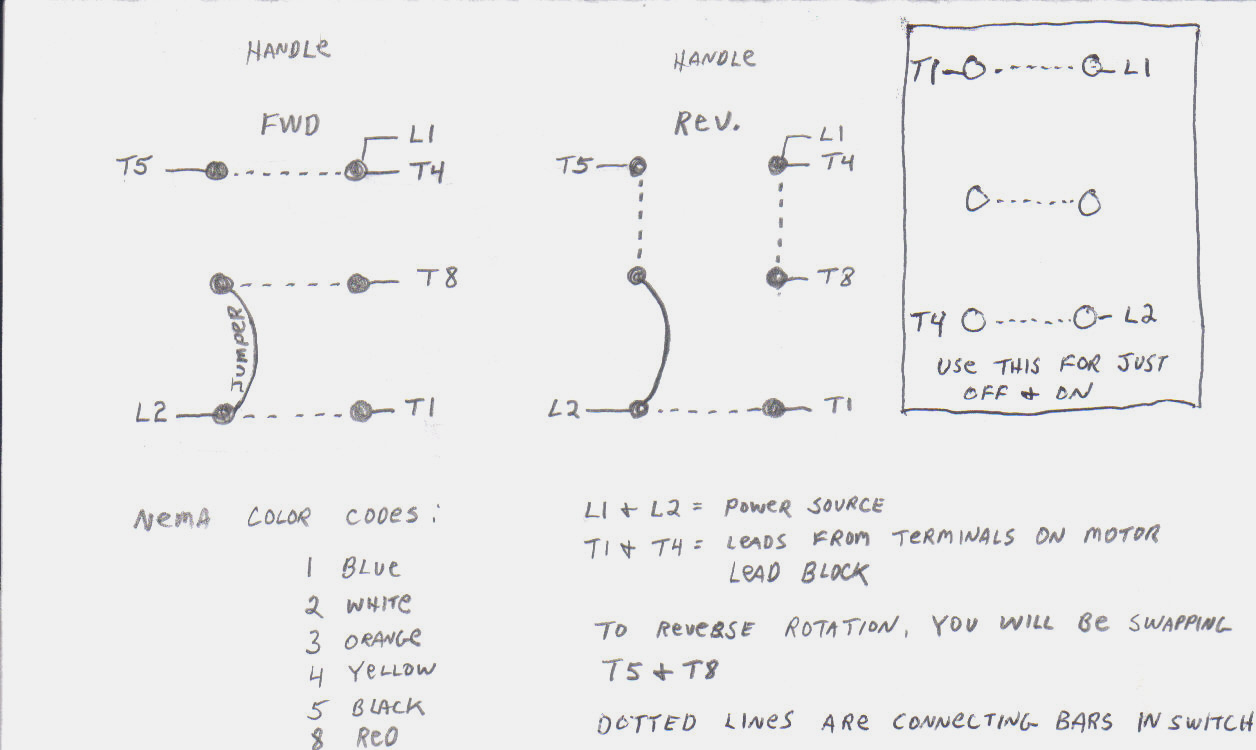 HANDLE
FWD
L1
T5
T4
T8
JUMPER
L2
T1
HANDLE
REV.
L1
T5
T4
T8
L2
T1
T1
L1
T4
L2
USE THIS FOR JUST
OFF + ON
NEMA COLOR CODES:
1 BLUE
2 WHITE
3 ORANGE
4 YELLOW
5 BLACK
8 RED
L1 + L2 = POWER SOURCE
T1 + T4 = LEADS FROM TERMINALS ON MOTOR
LEAD BLOCK
TO REVERSE ROTATION, YOU WILL BE SWAPPING
T5 + T8
DOTTED LINES ARE CONNECTING BARS IN SWITCH